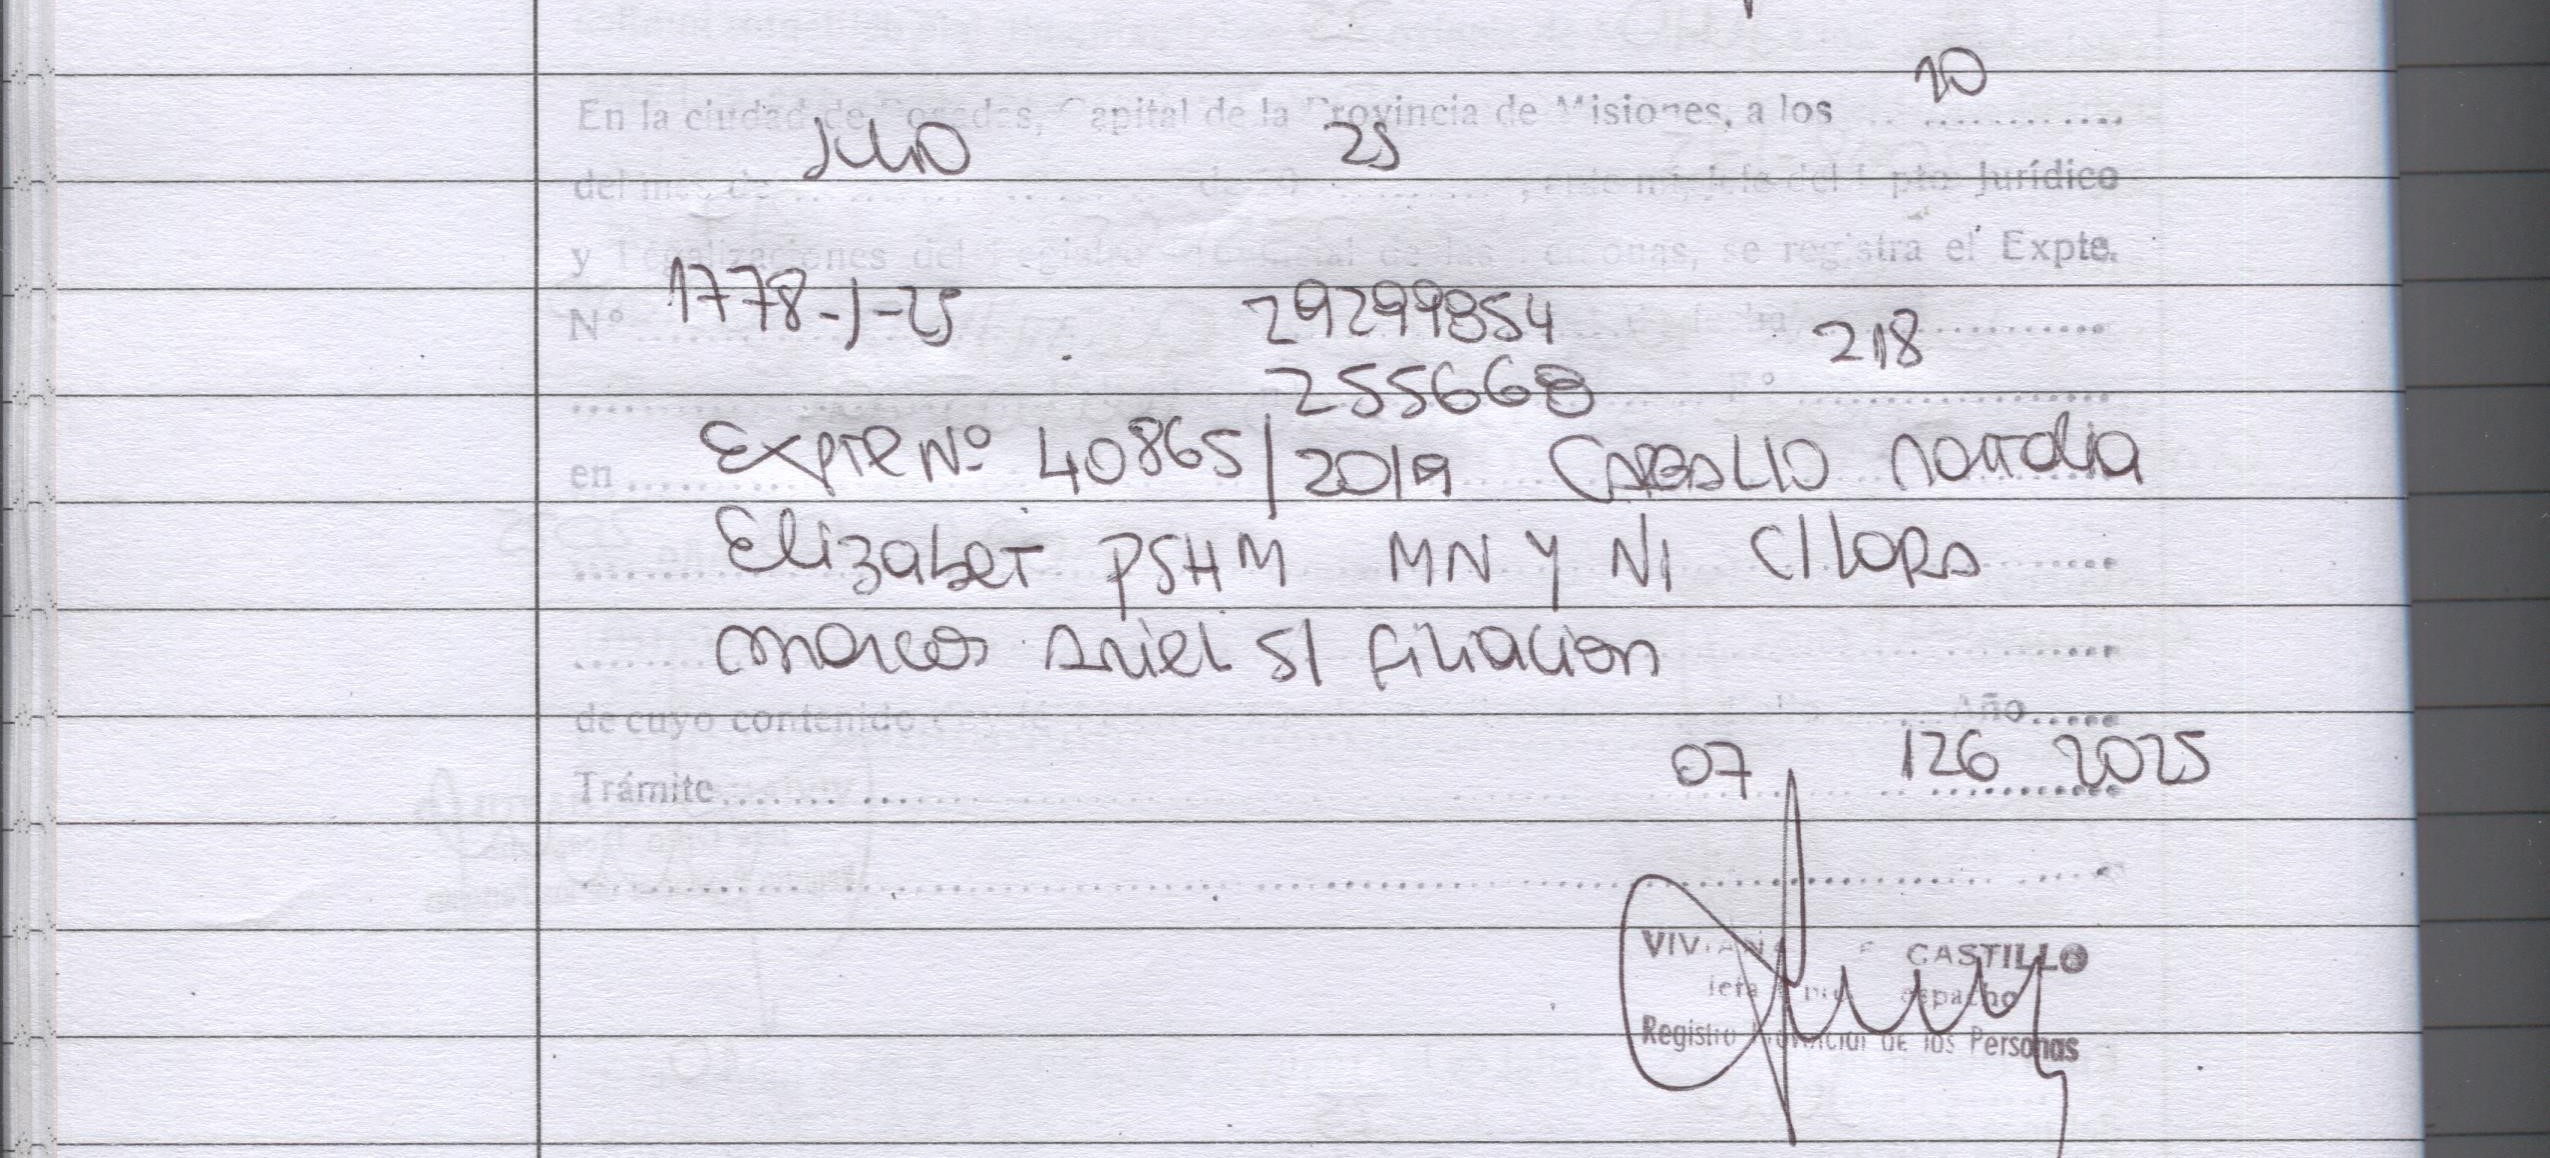 10
En la ciudad de Posadas, Capital de la Provincia de Misiones, a los
Julio 25
del mes de Jurídico
y Legalizaciones del Registro Provincial de las Personas, se registra el Expte.
Nº 1778-J-25 29299854 218
255668
en Expte Nº 40865/2019 Carballo Natalia
Elizabet PSHM MN Y NI C/ Lora
Marcos Ariel S/ Filiacion
de cuyo contenido Año
07 126 2025
Trámite
CASTILLO
Registro Provincial de los Personas